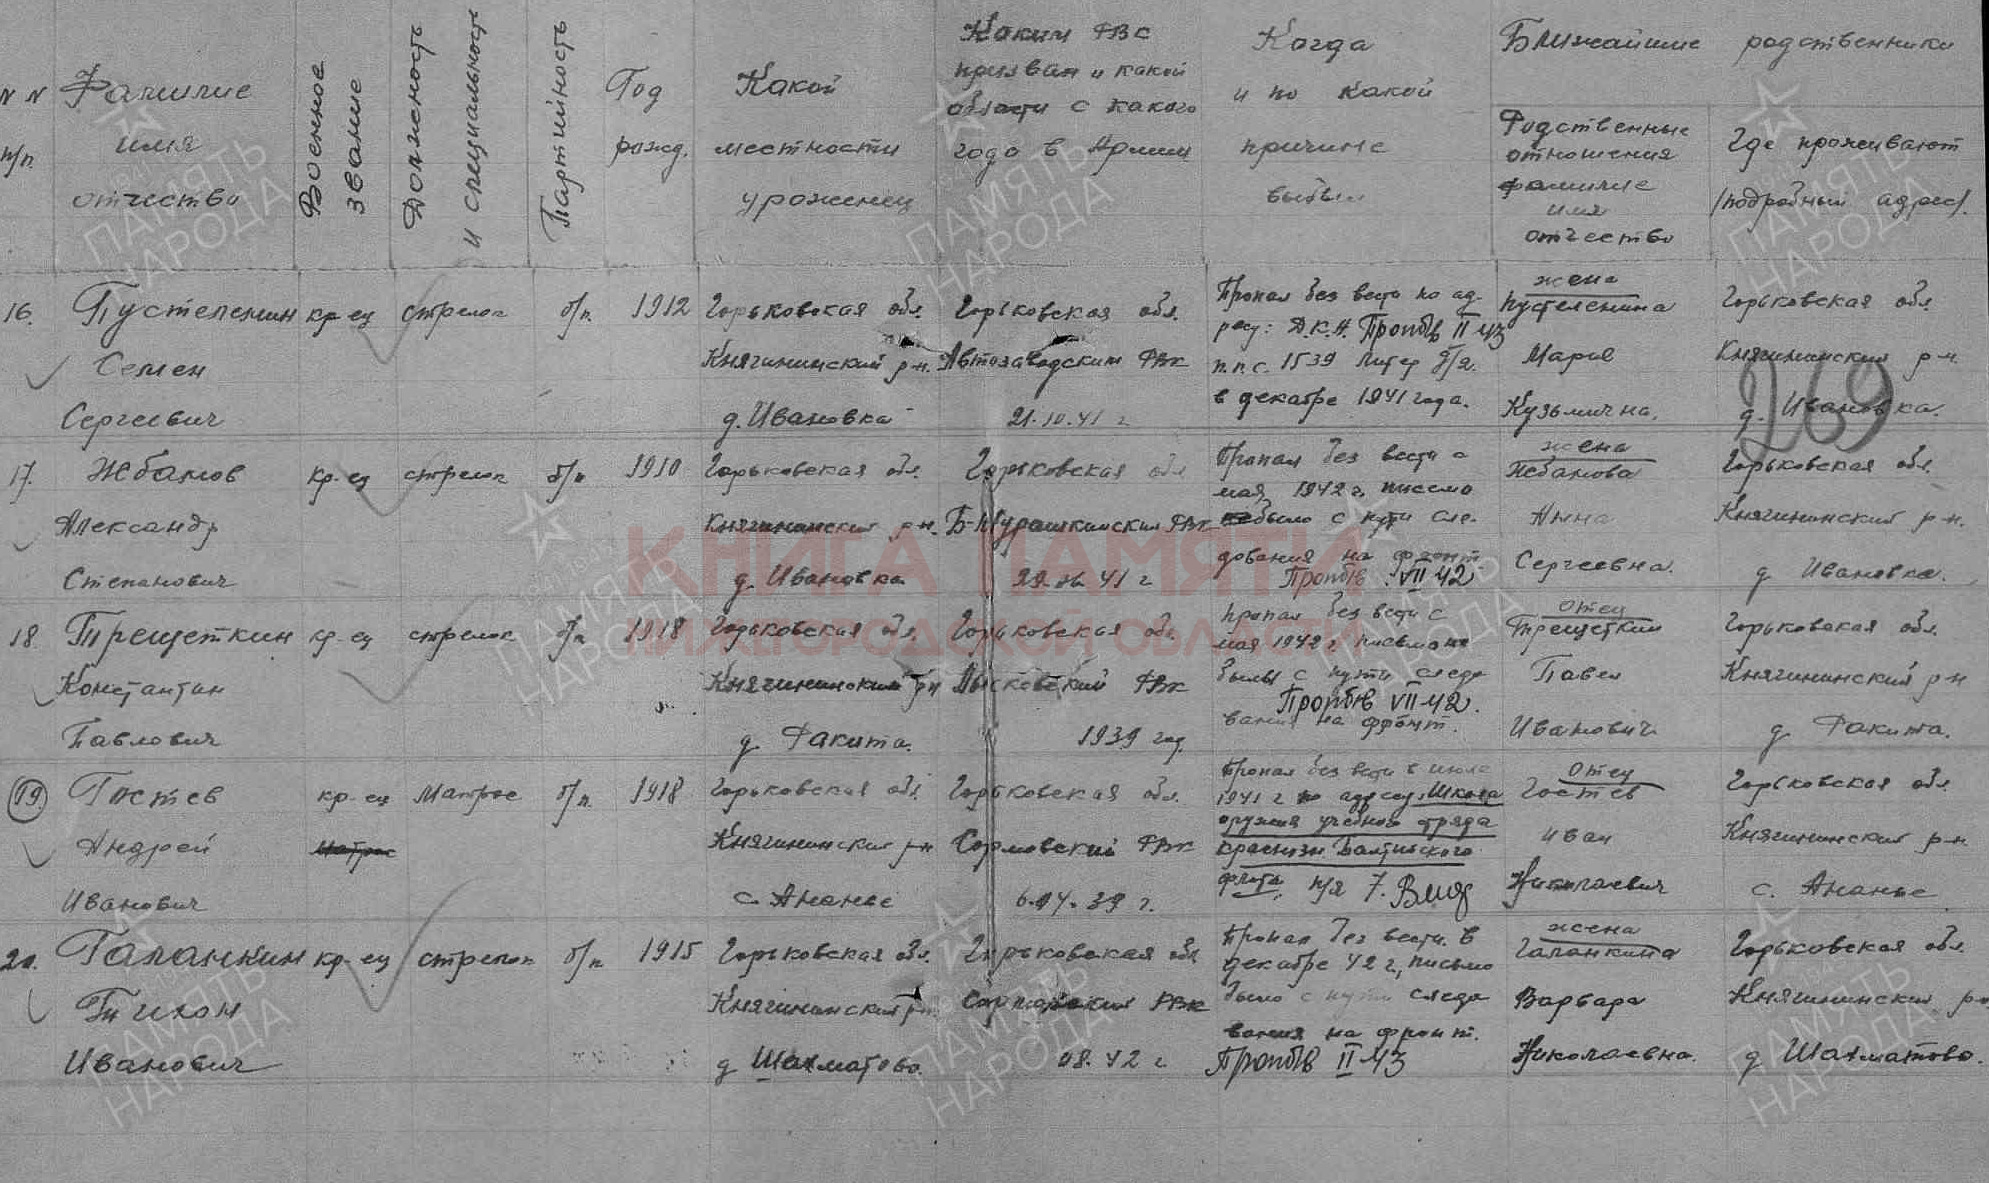 N N п/п.
Фамилие имя отчество
Военное звание
Должность и специальность
Партийность
Год рожд.
Какой местности уроженец
Каким РВС призван и какой области с какого года в Армии
Когда и по какой причине выбыл
Ближайшие родственники
Родственные отношения фамилие имя отчество
Где проживают /подробный адрес/.
16. Пустеленин кр-ец стрелок б/п. 1912 Горьковская обл. Горьковская обл. Пропал без вести по ад- жена Пустеленина Горьковская обл.
ресу: Д.К.А. Пропбв II 43
Семен Княгининский р-н. Автозаводским РВК п.п.с. 1539 литер б/я. Мария Княгининский р-н.
269
Сергеевич д. Ивановка 21.10.41 г в декабре 1941 года. Кузьминична. д. Ивановка.
17. Жбанов кр-ец стрелок б/п 1910 Горьковская обл. Горьковская обл Пропал без вести с жена Жбанова Горьковская обл.
мая 1942 г. письмо
Александр Княгининский р-н. Б-Мурашкинским РВК было с пути сле- Анна Княгининский р-н.
Степанович д. Ивановка 41 г дования на фронт. Сергеевна. д Ивановка.
Пропбв VII 42
18. Трещеткин кр-ец стрелок б/п 1918 Горьковская обл. Горьковская обл. Пропал без вести с отец Трещеткин Горьковская обл.
мая 1942 г. письмо
Константин Княгининский р-н Лысковский РВК с пути следо Павел Княгининский р-н
Пропбв VII 42.
Павлович д. Факита. 1939 год. вания на фронт. Иванович д. Факита.
19. Гостев кр-ец Матрос б/п. 1918 Горьковская обл. Горьковская обл. Пропал без вести в июле отец Гостев Горьковская обл.
1941 г по адресу: Школа
оружия учебного отряда
Андрей матрос Княгининский р-н Сормовский РВК краснозн. Балтийского Иван Княгининский р-н
Иванович с. Ананье 39 г. флота, п/я 7. Николаевич с. Ананье
20. Галанкин кр-ец стрелок б/п. 1915 Горьковская обл. Горьковская обл Пропал без вести в жена Галанкина Горьковская обл.
декабре 42 г, письмо
Тихон Княгининский р-н Сормовский РВК было с пути следо Варвара Княгининский р-н
вания на фронт.
Иванович д Шахматово. 08.42 г Пропбв II 43 Николаевна. д Шахматово.
КНИГА ПАМЯТИ
НИЖЕГОРОДСКОЙ ОБЛАСТИ
ПАМЯТЬ НАРОДА
ПАМЯТЬ НАРОДА
ПАМЯТЬ НАРОДА
ПАМЯТЬ НАРОДА
ПАМЯТЬ НАРОДА
ПАМЯТЬ НАРОДА
ПАМЯТЬ НАРОДА
ПАМЯТЬ НАРОДА